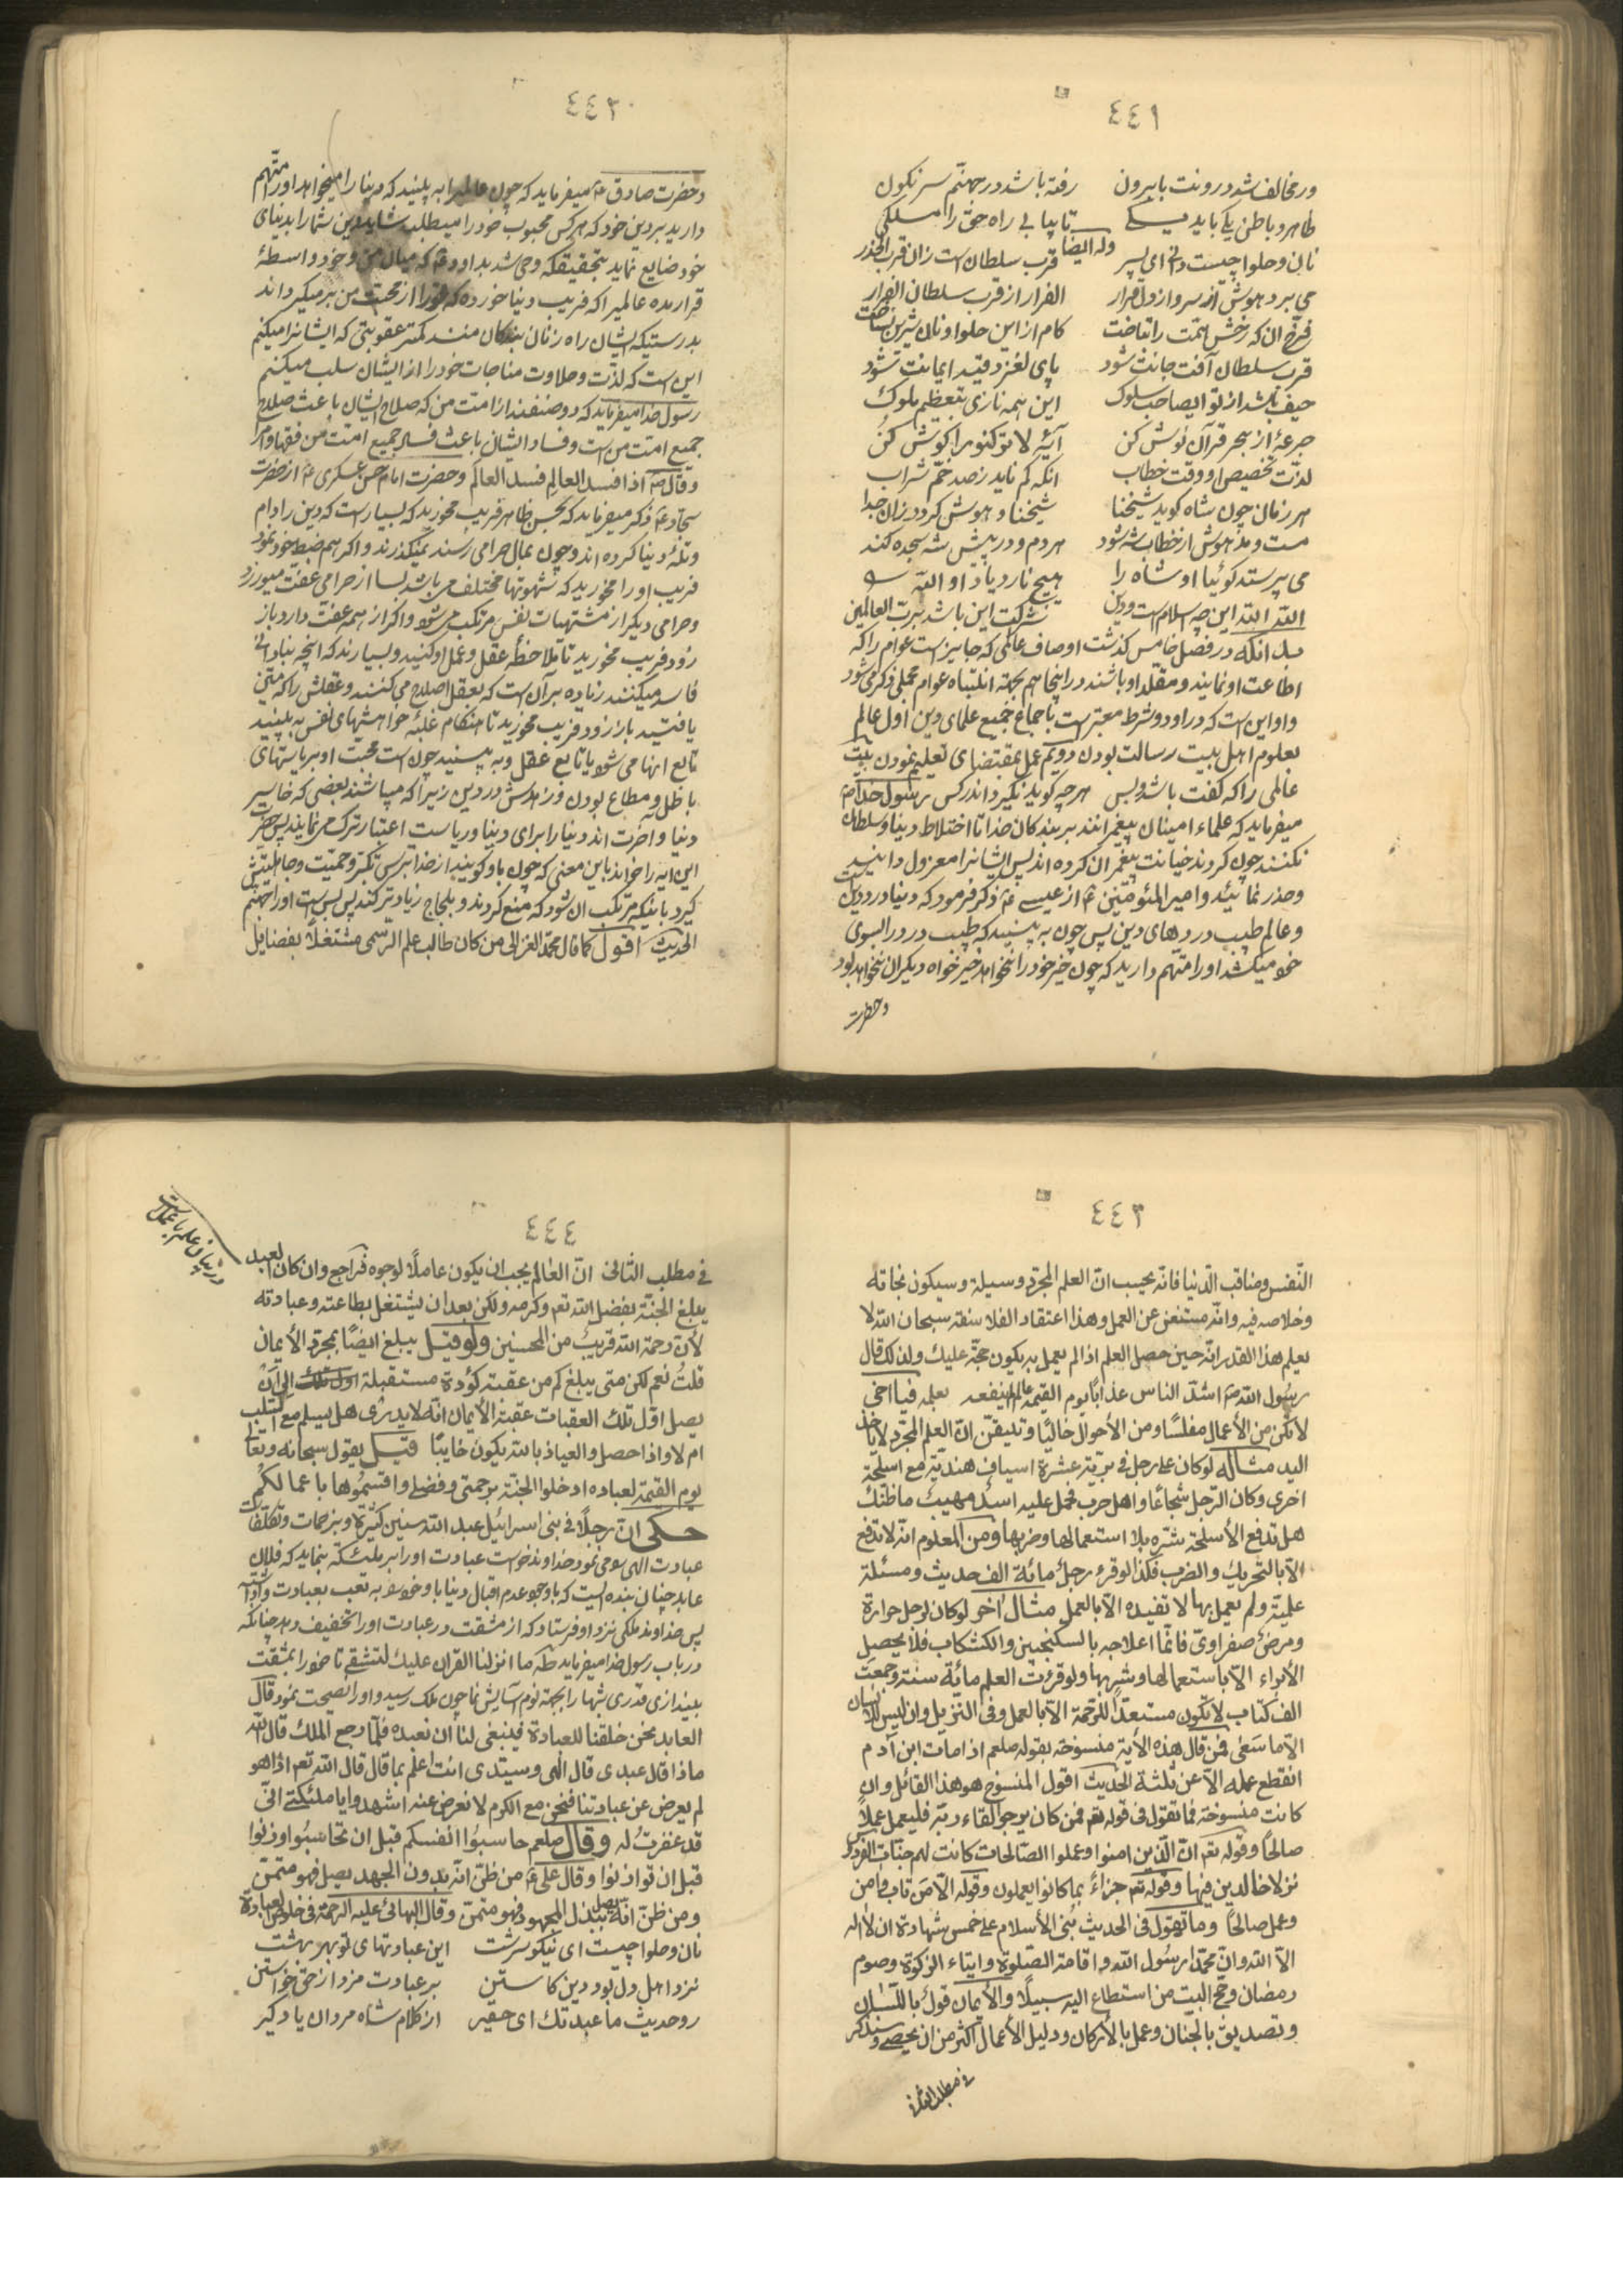 ٤٤١
ور مخالف شد درونت با برون رفته باشد در جهنم سرنگون
ظاهر و باطن یکی باید یکی تا بیابی راه حق را اندکی
وله ایضا
نان و حلوا چیست دانی ای پسر قرب سلطان است زان قرب الحذر
می برد هوش از سر و از دل قرار الفرار از قرب سلطان الفرار
فرخ آن که رخش همت را بتاخت کام از این حلوا و نان شیرین نساخت
قرب سلطان آفت جانت شود پای لغز و قید ایمانت شود
حیف باشد از تو ایصاحب سلوک این همه نازی بتعظیم ملوک
جرعهٔ از بحر قرآن نوش کن آیهٔ لا ترکنوا را گوش کن
لذت تخصیص او وقت خطاب آنکه کم ناید ز صد خم شراب
هر زمان چون شاه گوید شیخنا شیخنا مدهوش گردد زان جدا
مست و مدهوش از خطاب شه شود هر دم و در پیش شه سجده کند
می پرستد گوئیا او شاه را هیچ نارد یاد او الله
الله الله این چه اسلام است و دین شرکت این باشد برب العالمین
بدانکه در فصل خامس گذشت اوصاف عالمی که جایز است عوام را که
اطاعت او نمایند و مقلد او باشند در اینجا هم بجهة انتباه عوام مجملی ذکر می شود
و او این است که در او دو شرط معتبر است باجماع جمیع علمای دین اول عالم
بعلوم اهل بیت رسالت بودن دویم عمل بمقتضای تعلیم نمودن بیت
عالمی را که گفت باشد و بس هر چه گوید نگیرد اندر کس رسول خدا ص
میفرماید که علماء امینان پیغمبرانند بر بندگان خدا تا اختلاط دنیا و سلطان
نکنند چون کردند خیانت پیغمبران کرده اند پس ایشانرا معزول دانید
و حذر نمائید و امیر المؤمنین ع از عیسی ع ذکر فرمود که دنیا درد دین است
و عالم طبیب دردهای دین پس چون به بینید که طبیب درد را بسوی
خود میکشد او را متهم دارید که چون خیر خود را نخواهد خیرخواه دیگران نخواهد بود
و حضرت
٤٤٢
و حضرت صادق ع میفرماید که چون عالم را به بینید که دنیا را میخواهد او را متهم
دارید بر دین خود که هر کس محبوب خود را میطلب شاید دین شما را بدنیای
خود ضایع نماید بتحقیقکه وحی شد بداود ع که میان من و خود واسطهٔ
قرار مده عالمیرا که فریب دنیا خورده که تو را از محبت من بر میگرداند
بدرستیکه ایشان راه زنان بندگان منند کمتر عقوبتی که ایشانرا میکنم
این است که لذت و حلاوت مناجات خود را از ایشان سلب میکنم
رسول خدا میفرماید که دو صنفند از امت من که صلاح ایشان باعث صلاح
جمیع امت من است و فساد ایشان باعث فساد جمیع امت من فقها و امرا
و قال ص اذا فسد العالِم فسد العالَم و حضرت امام حسن عسکری ع از حضرت
سجاد ع ذکر میفرماید که بحسن ظاهر فریب مخورید که بسیار است که دین را دام
و تلهٔ دنیا کرده اند و چون بمال حرامی رسند نمیگذرند و اگر هم ضبط خود نمود
فریب او را مخورید که شهوتها مختلف می باشد بسا از حرامی عفت میورزد
و حرامی دیگر از مشتهیات نفس مرتکب می شود و اگر از همه عفت دارد باز
زود فریب مخورید تا ملاحظهٔ عقل و عمل او کنید و بسیارند که آنچه بنادانی
فاسد میکنند زیاده بر آن است که بعقل اصلاح می کنند و عقلش را که متین
یافتید باز زود فریب مخورید تا هنگام غلبهٔ خواهشهای نفس به بینید
تابع آنها می شود یا تابع عقل و به بینید چون است محبت او بریاستهای
باطل و مطاع بودن و زهدش در دین زیرا که میباشند بعضی که خاسر
دنیا و آخرت اند دنیا را برای دنیا و ریاست اعتبار ترک می نمایند پس حضرت
این آیه را خواند باین معنی که چون باو گویند از خدا بترس تکبر و حمیت و جاهلیتش
گیرد باینکه مرتکب آن شود که منع کردند و بلجاج زیادتر کند پس بس است او را جهنم
الحدیث اقول کما قال محمد الغزالی من کان طالب علم الرسمی مشتغلاً بفضایل
٤٤٣
النفس و مناقب الدنیا فانه یحسب ان العلم المجرد وسیلة و سیکون نجاته
و خلاصه فیه و انه مستغن عن العمل و هذا اعتقاد الفلاسفة سبحان الله لا
یعلم هذا القدر انه حین حصل العلم اذا لم یعمل به یکون حجة علیک و لذلک قال
رسول الله ص اشد الناس عذابا یوم القیمة عالم لم ینفعه بعلمه فیا اخی
لا تکن من الأعمال مفلسًا و من الأحوال خالیًا و تیقن ان العلم المجرد لا یأخذ
الید مثاله لو کان علی رجل فی بریة عشرة اسیاف هندیة مع اسلحة
اخری و کان الرجل شجاعًا و اهل حرب فحمل علیه اسد مهیب ما ظنک
هل تدفع الأسلحة شره بلا استعمالها و ضربها و من المعلوم انه لا تدفع
الا بالتحریک و الضرب فکذا لو قرء رجل مائة الف حدیث و مسئلة
علمیة و لم یعمل بها لا تفیده الا بالعمل مثال آخر لو کان لرجل حرارة
و مرض صفراوی فانما علاجه بالسکنجبین و الکشکاب فلا یحصل
الأبراء الا باستعمالها و شربها و لو قرءت العلم مائة سنة و جمعت
الف کتاب لا تکون مستعداً للرحمة الا بالعمل و فی التنزیل و ان لیس للانسان
الا ما سعی فمن قال هذه الآیة منسوخة بقوله صلعم اذا مات ابن آدم
انقطع عمله الا عن ثلثة الحدیث اقول المنسوخ هو هذا القائل و ان
کانت منسوخة فما تقول فی قوله تعم فمن کان یرجوا لقاء ربه فلیعمل عملاً
صالحًا و قوله تعم ان الذین امنوا و عملوا الصالحات کانت لهم جنات الفردوس
نزلا خالدین فیها و قوله تعم جزاءً بما کانوا یعملون و قوله الا من تاب و امن
و عمل صالحًا و ما تقول فی الحدیث بُنی الأسلام علی خمس شهادة ان لا اله
الا الله و ان محمدا رسول الله و اقامة الصلوة و ایتاء الزکوة و صوم
رمضان و حج البیت من استطاع الیه سبیلًا و الأیمان قول باللسان
و تصدیق بالجنان و عمل بالأرکان و دلیل الأعمال اکثر من ان یحصی و سنذکر
فی مطلب الثانی
٤٤٤
در بیان علم با عمل است
فی مطلب الثانی ان العالم یجب ان یکون عاملًا لوجوه فراجع و ان کان العبد
یبلغ الجنة بفضل الله تعم و کرمه و لکن بعد ان یشتغل بطاعته و عبادته
لأن رحمة الله قریب من المحسنین و لو قیل یبلغ ایضًا بمجرد الأیمان
قلتُ نعم لکن متی یبلغ کم من عقبة کؤدة مستقبلة الی ان
یصل اول تلک العقبات عقبة الأیمان انه لا یدری هل یسلم مع السلب
ام لا و اذا حصل و العیاذ بالله یکون خایبًا قیل یقول سبحانه و تعا
یوم القیمة لعباده ادخلوا الجنة برحمتی و فضلی و اقتسموها باعمالکم
حکی ان رجلًا فی بنی اسرائیل عبد الله سنین کثیرة و بزحمات و تکلفات
عبادت الهی سومی نمود خداوند خواست عبادت او را بر ملئکه بنماید که فلان
عابد چنان بنده ایست که با وجود عدم اقبال دنیا باو خوشم به تعب بعبادت
پس خداوند ملکی نزد او فرستاد که از مشقت در عبادت او را تخفیف دهد چنانکه
در باب رسول خدا میفرماید طه ما انزلنا القران علیک لتشقی تا خود را بمشقت
بیندازی قدری شبها را بجهة نوم آسایش نما چون ملک رسید و او را نصیحت نمود قال
العابد نحن خلقنا للعبادة فینبغی لنا ان نعبده فلما رجع الملک قال الله
ماذا قال عبدی قال الهی و سیدی انت اعلم بما قال قال الله تعم اذا هو
لم یعرض عن عبادتنا فنحن مع الکرم لا نعرض عنه اشهدوا یا ملئکتی انی
قد غفرت له و قال صلعم حاسبوا انفسکم قبل ان تحاسبوا و زنوا
قبل ان توازنوا و قال علی ع من ظن انه بدون الجهد یصل فهو متمن
و من ظن انه یصل ببذل المجهود فهو متمن و قال البهائی علیه الرحمة فی خلوص العبادة
نان و حلوا چیست ای نیکو سرشت این عبادتهای تو بهر بهشت
نزد اهل دل بود دین کاستن بر عبادت مزد از حق خواستن
رو حدیث ما عبدتک ای حقیر از کلام شاه مردان یاد گیر